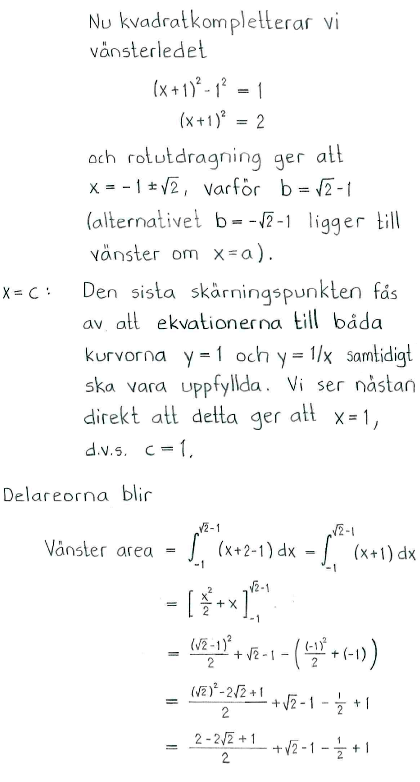 Nu kvadratkompletterar vi
vänsterledet
(x+1)² - 1² = 1
(x+1)² = 2
och rotutdragning ger att
x = -1 ± √2, varför b = √2 - 1
(alternativet b = -√2 - 1 ligger till
vänster om x = a).
x = c: Den sista skärningspunkten fås
av att ekvationerna till båda
kurvorna y = 1 och y = 1/x samtidigt
ska vara uppfyllda. Vi ser nästan
direkt att detta ger att x = 1,
d.v.s. c = 1.
Delareorna blir
Vänster area = ∫_{-1}^{√2-1} (x+2-1) dx = ∫_{-1}^{√2-1} (x+1) dx
= [x²/2 + x]_{-1}^{√2-1}
= (√2-1)²/2 + √2 - 1 - ((-1)²/2 + (-1))
= ((√2)² - 2√2 + 1)/2 + √2 - 1 - 1/2 + 1
= (2 - 2√2 + 1)/2 + √2 - 1 - 1/2 + 1